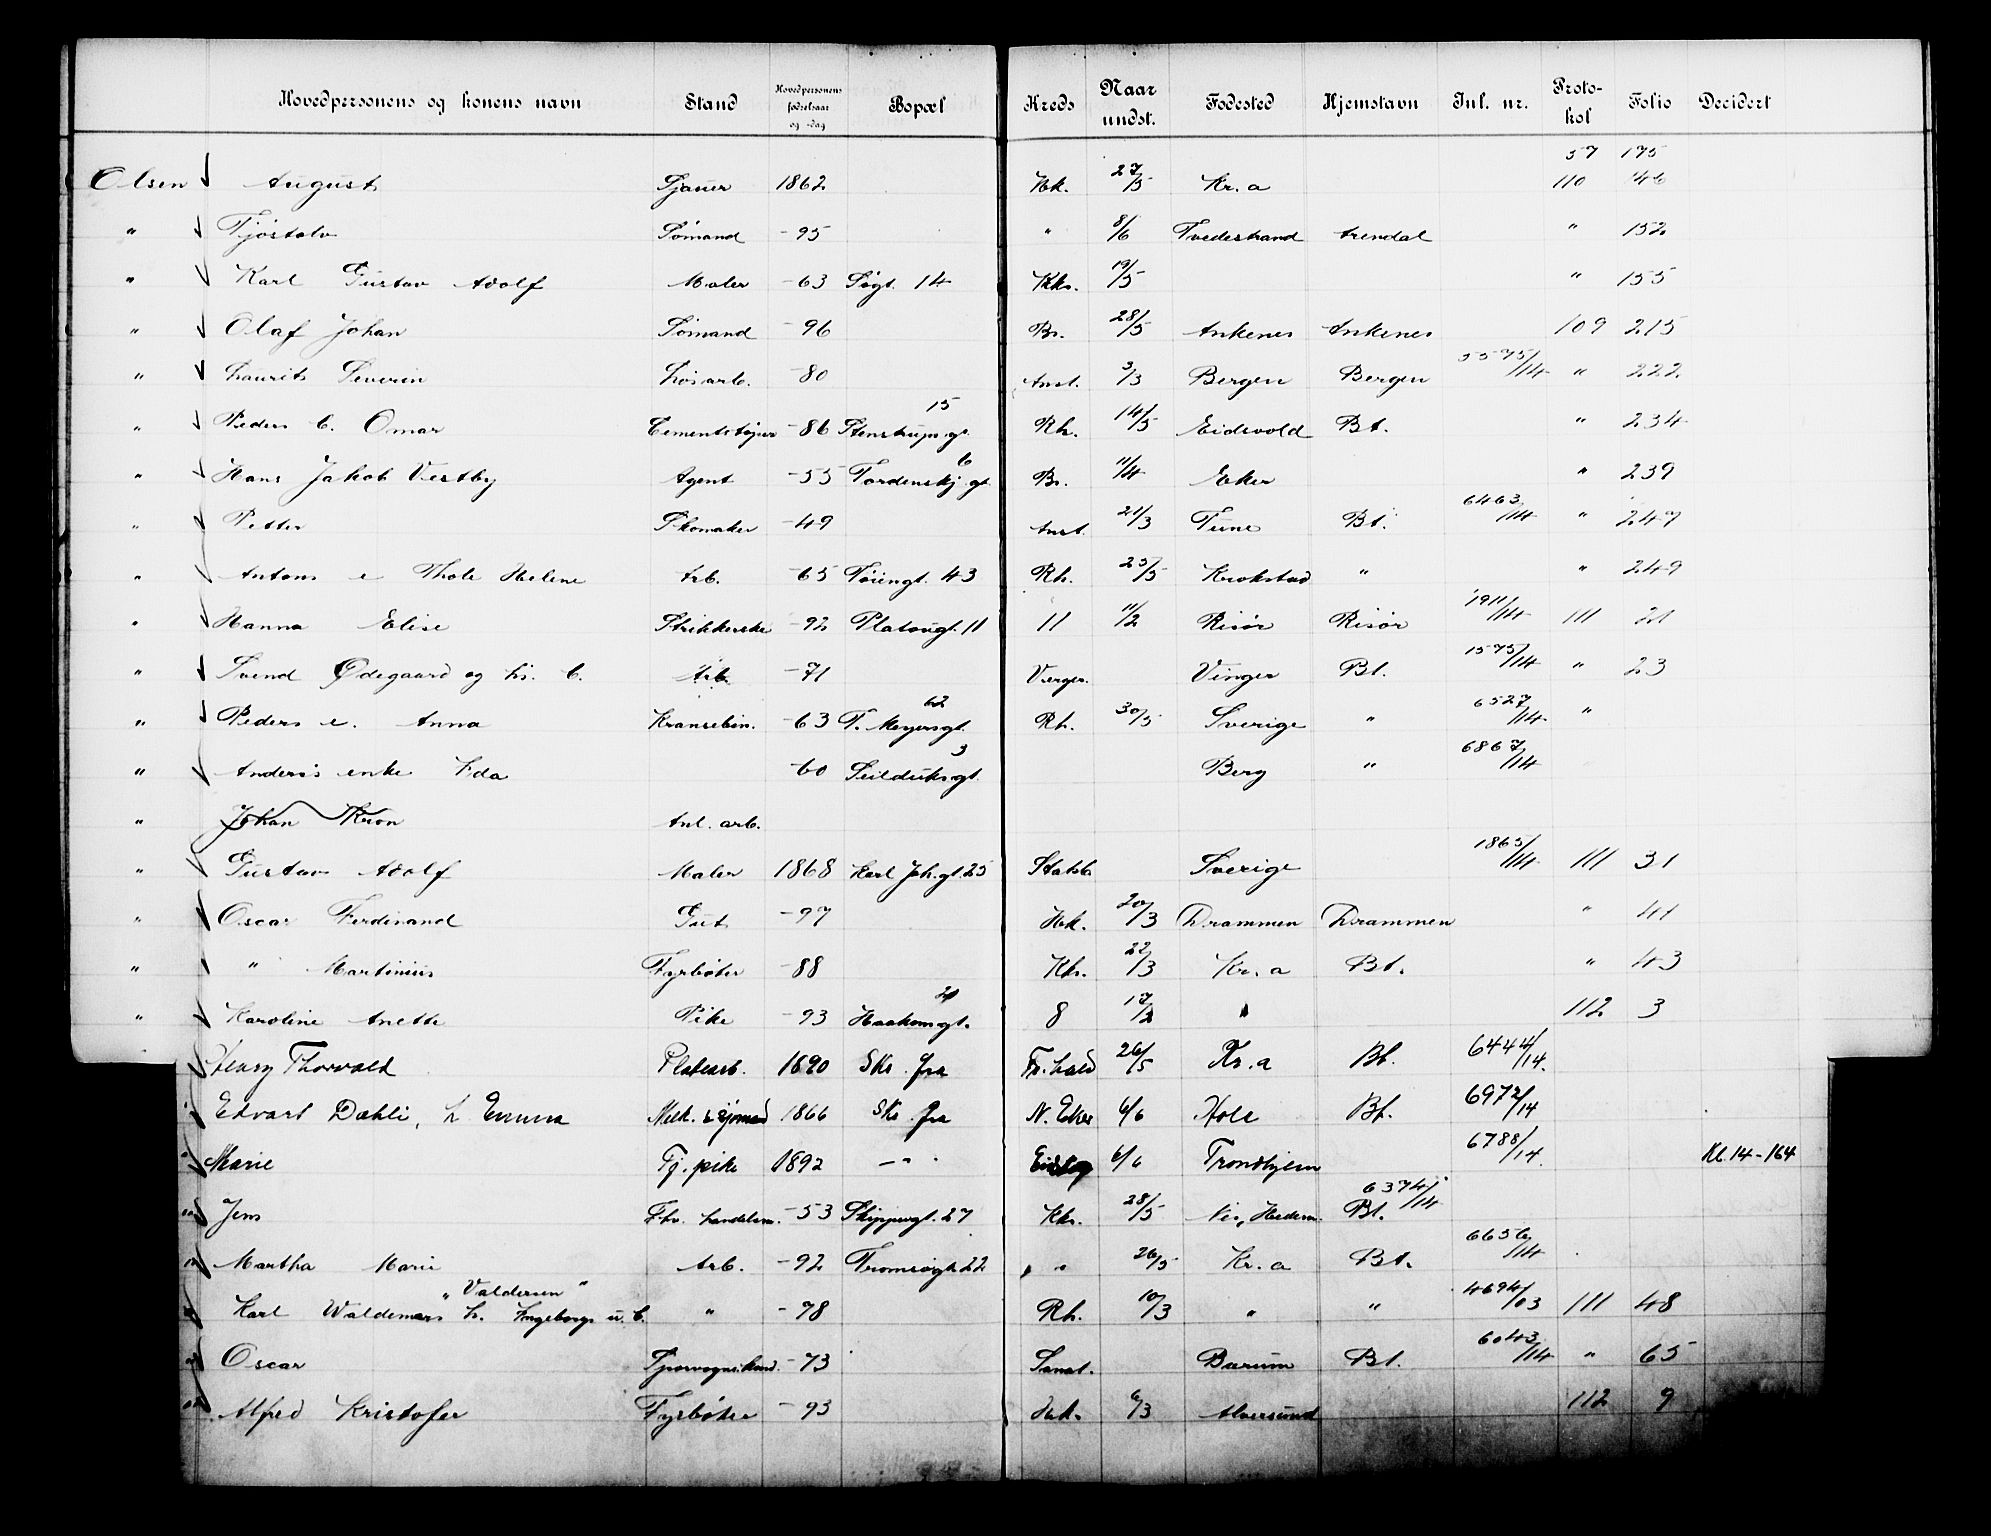 Hovedpersonens og konens navn Stand Hovedpersonens fødselsaar og -dag Bopæl Kreds Naar undst. Fødested Hjemstavn Inl. nr. Protokol Folio Decidert
57 175
Olsen August Sjauer 1862 Hk. 27/5 Kr.a 110 146
" Tjøstolv Sømand -95 " 8/6 Tvedestrand Arendal " 152
" Karl Gustav Adolf Maler -63 Søgt. 14 Kks. 19/5 " 155
" Olaf Johan Sømand -96 Br. 28/5 Ankenes Ankenes 109 215
" Laurits Severin Løsarb. -80 Anst. 3/3 Bergen Bergen 5575/14 " 222
" Peders C. Omar Cementstøper -86 Stenstrupsgt. 15 Rh. 14/5 Eidsvold Bt. " 234
" Hans Jakob Vestby Agent -55 Tordenskj.gt 6 Br. 11/4 Eker " 239
" Petter Skomaker -49 Anst. 21/3 Tune Bt. 6463/14 " 247
" Antons e Thole Helene Arb. -65 Tøiengt. 43 Rh. 25/5 Krokstad " " 249
" Hanna Elise Strikkerske -92 Platougt. 11 11 11/2 Risør Risør 1911/14 111 21
" Svend Ødegaard og hs. C. Arb. -71 Værger. Vinger Bt. 1575/14 " 23
" Peders e. Anna Kransebin. -63 T. Meyersgt. 62 Rh. 30/5 Sverige " 6527/14 "
" Anders's enke Eda -60 Seilduksgt. 3 Berg " 6867/14
" Johan Kron Anl. arb.
" Gustav Adolf Maler 1868 Karl Joh.gt 25 Stabb. Sverige 1865/14 111 31
" Oscar Ferdinand Gut -97 Hk. 20/3 Drammen Drammen " 41
" " Martinius Fyrbøter -88 Kh. 22/3 Kr.a Bt. " 43
" Karoline Anette Pike -93 Haakonsgt. 21 8 17/2 " 112 3
Henry Thorvald Platearb. 1890 SKr. fra Fr.hald 26/5 Kr.a Bt. 6444/14.
Edvart Dahli, h. Emma Mek. & sjømand 1866 SKr. fra N. Eker 6/6 Hole Bt. 6972/14
Marie Tj. pike 1892 — " Eidsbg 6/6 Trondhjem 6788/14. Kl. 14-164
Jens Fhv. handelsm. -53 Skippergt. 27 Kks. 28/5 Nes, Hedem. Bt. 6374/14
Martha Marie Arb. -92 Tromsøgt 22 " 26/5 Kr.a Bt. 6656/14
" Valdersen "
Karl Waldemars h. Ingeborgs u. C. " -78 Rh. 10/3 " " 4694/03 111 48
Oscar Sporvogns.kud. -73 Sanat. Bærum Bt. 6043/14 " 65
Alfred Kristofer Fyrbøter -93 Hk. 6/3 Alversund 112 9